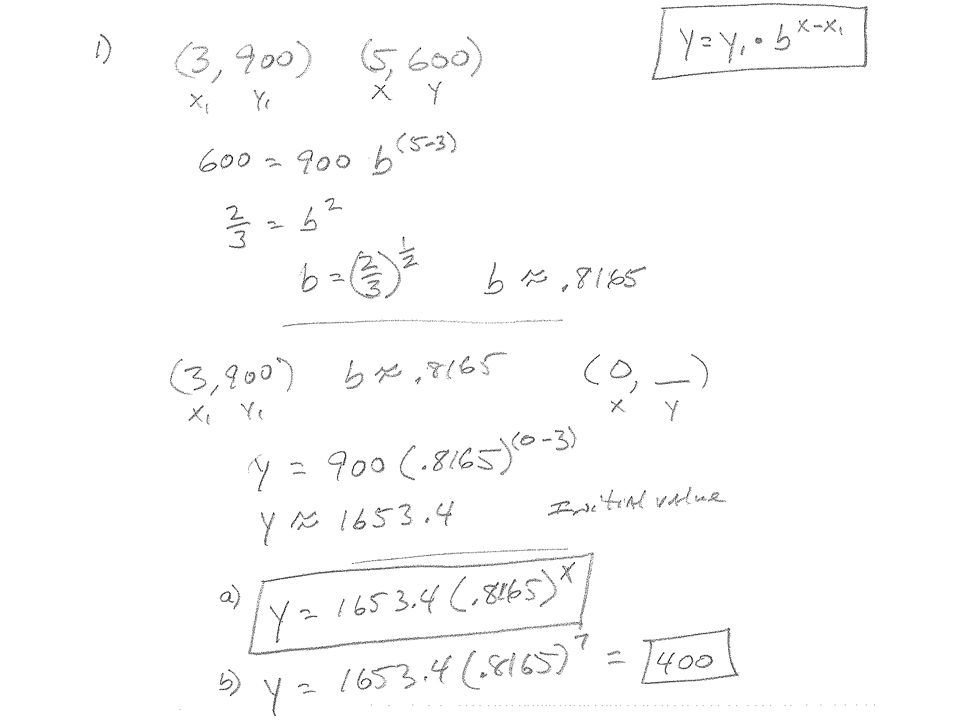 1) (3, 900) (5, 600) y = y₁ • b^(x-x₁)
x₁ y₁ x y
600 = 900 b^(5-3)
2/3 = b²
b = (2/3)^(1/2) b ≈ .8165
(3, 900) b ≈ .8165 (0, __)
x₁ y₁ x y
y = 900 (.8165)^(0-3)
y ≈ 1653.4 Initial value
a) y = 1653.4 (.8165)^x
b) y = 1653.4 (.8165)^7 = 400